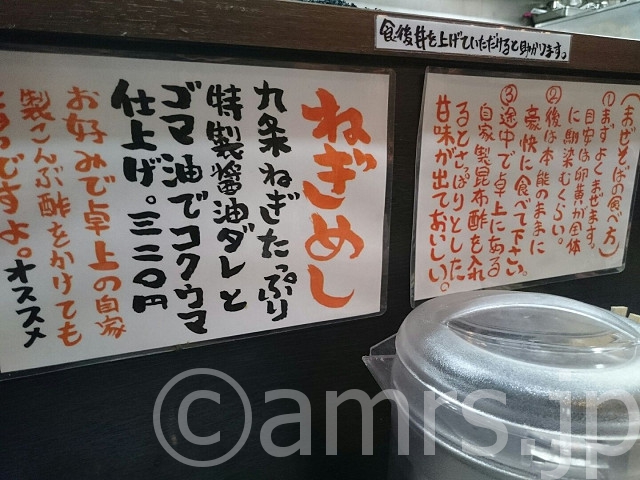 食後丼を上げていただけると助かります。
(まぜそばの食べ方)
①まずよくまぜます。
目安は卵黄が全体
に馴染むくらい。
②後は本能のままに
豪快に食べて下さい。
③途中で卓上にある
自家製昆布酢を入れ
るとさっぱりとした
甘味が出ておいしい。
ねぎめし
九条ねぎたっぷり
特製醤油ダレと
ゴマ油でコクウマ
仕上げ。三二〇円
お好みで卓上の自家
製こんぶ酢をかけても
とうですよ。オススメ
©amrs.jp